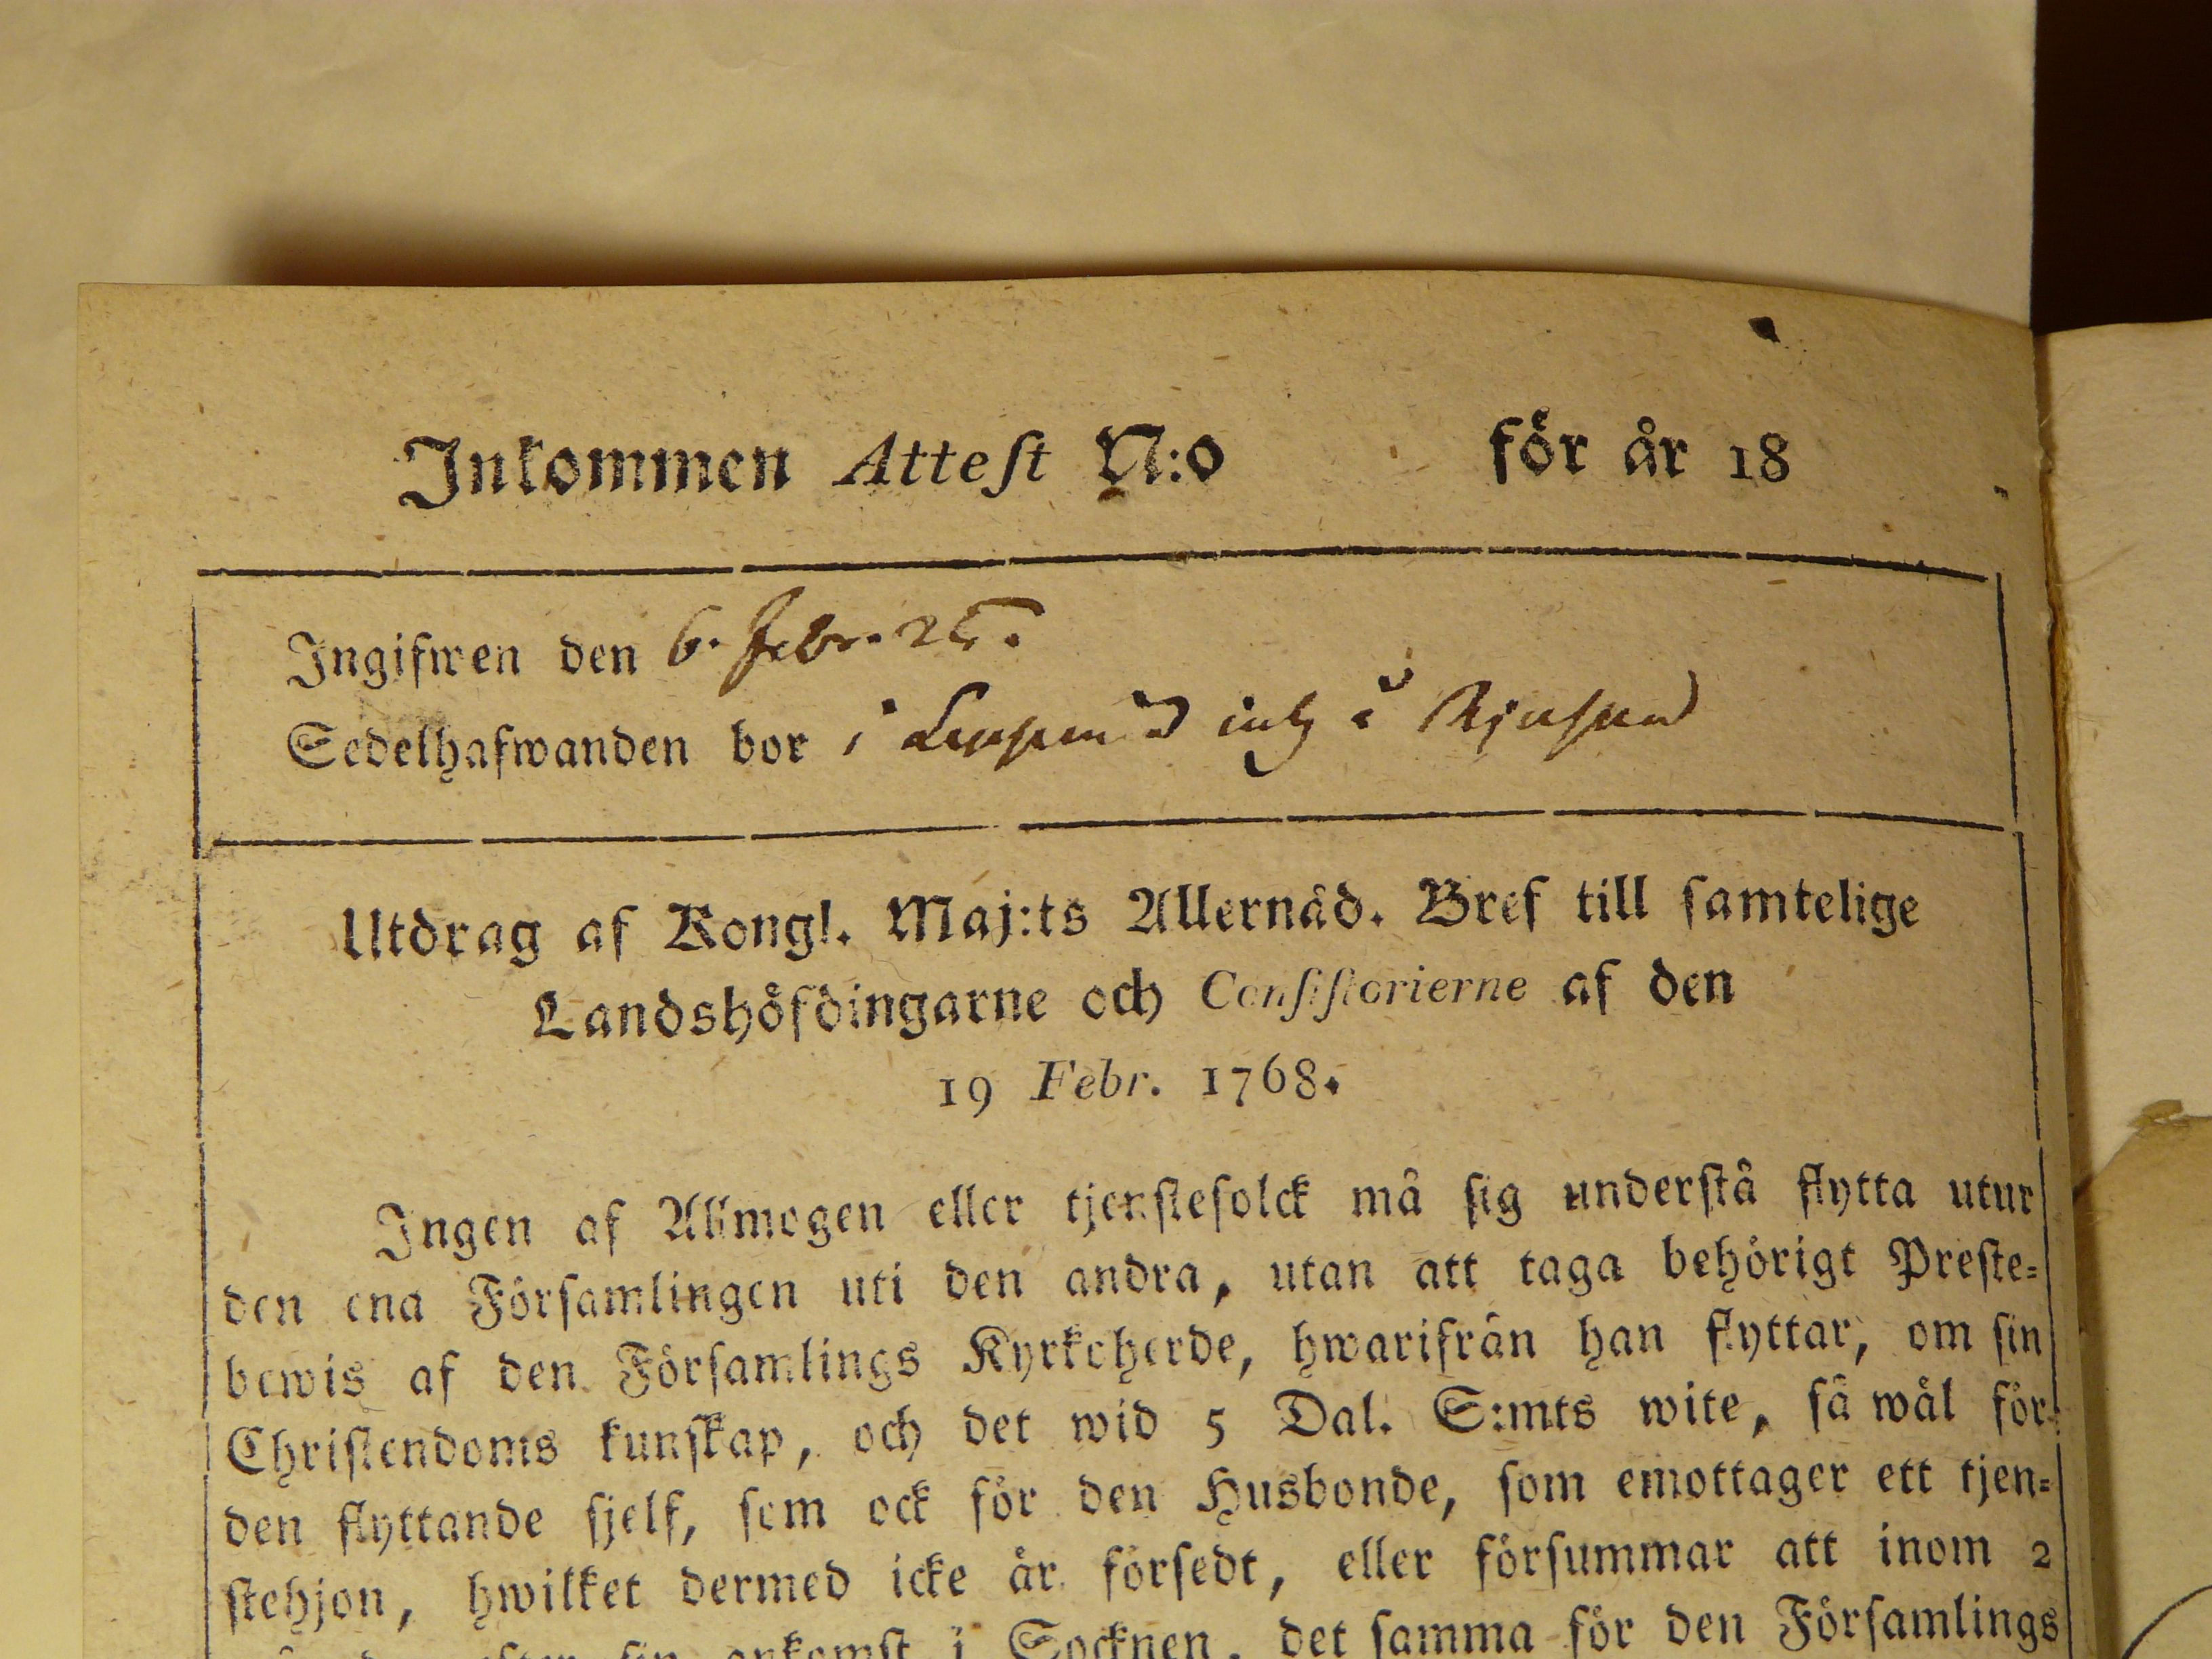 Inkommen Attest N:o för år 18
Ingifwen den 6. Febr. 25.
Sedelhafwanden bor i
Utdrag af Kongl. Maj:ts Allernåd. Bref till samtelige
Landshöfdingarne och Consistorierne af den
19 Febr. 1768.
Ingen af Allmogen eller tjenstefolck må sig understå flytta utur
den ena Församlingen uti den andra, utan att taga behörigt Preste-
bewis af den Församlings Kyrkoherde, hwarifrån han flyttar, om sin
Christendoms kunskap, och det wid 5 Dal. S:mts wite, så wäl för
den flyttande sjelf, som ock för den Husbonde, som emottager ett tjen-
stehjon, hwilket dermed icke är försedt, eller försummar att inom 2
ankomst i Socknen, det samma för den Församlings